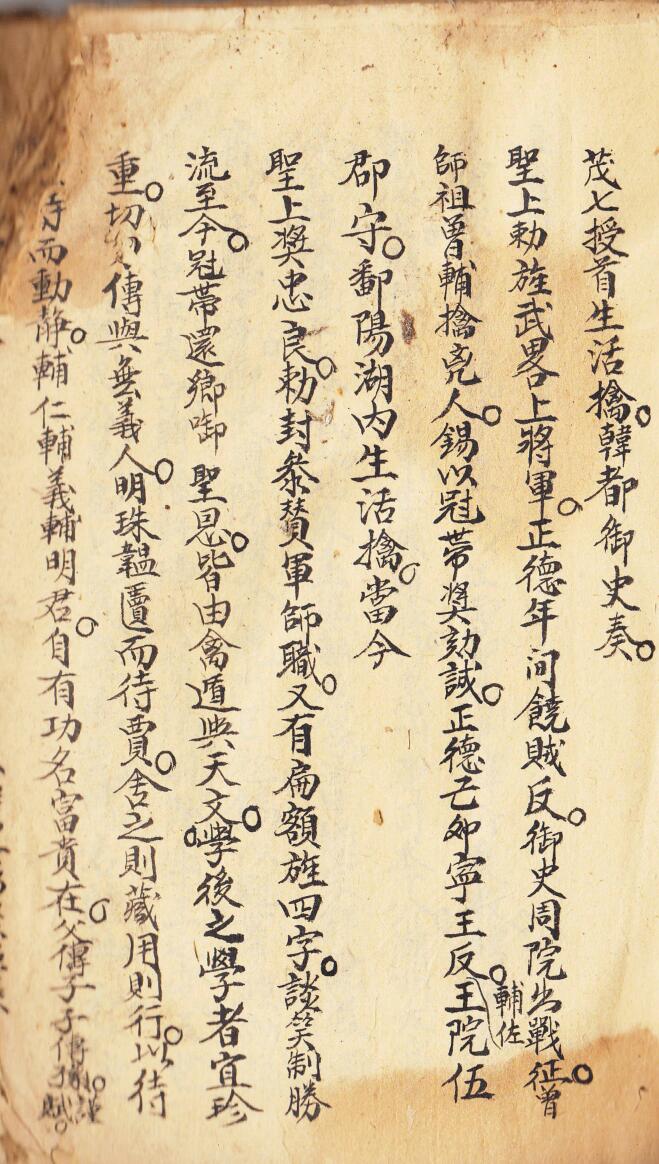 茂七授首生活擒韓都御史奏
聖上勅旌武畧上將軍正德年间饒賊反御史周院出戰征曾
師祖曾輔擒兇人錫以冠帶奨効誠正德己卯寧王反王院輔佐伍
郡守鄱陽湖内生活擒當今
聖上奨忠良勅封叅賛軍師職又有扁額旌四字談笑制勝
流至今冠帶還鄉啣聖恩皆由禽遁與天文學後之學者宜珍
重切勿傳與無義人明珠韞匵而待賈舍之則藏用則行以待
待而動静輔仁輔義輔明君自有功名富貴在父傳子子傳孫謹賦